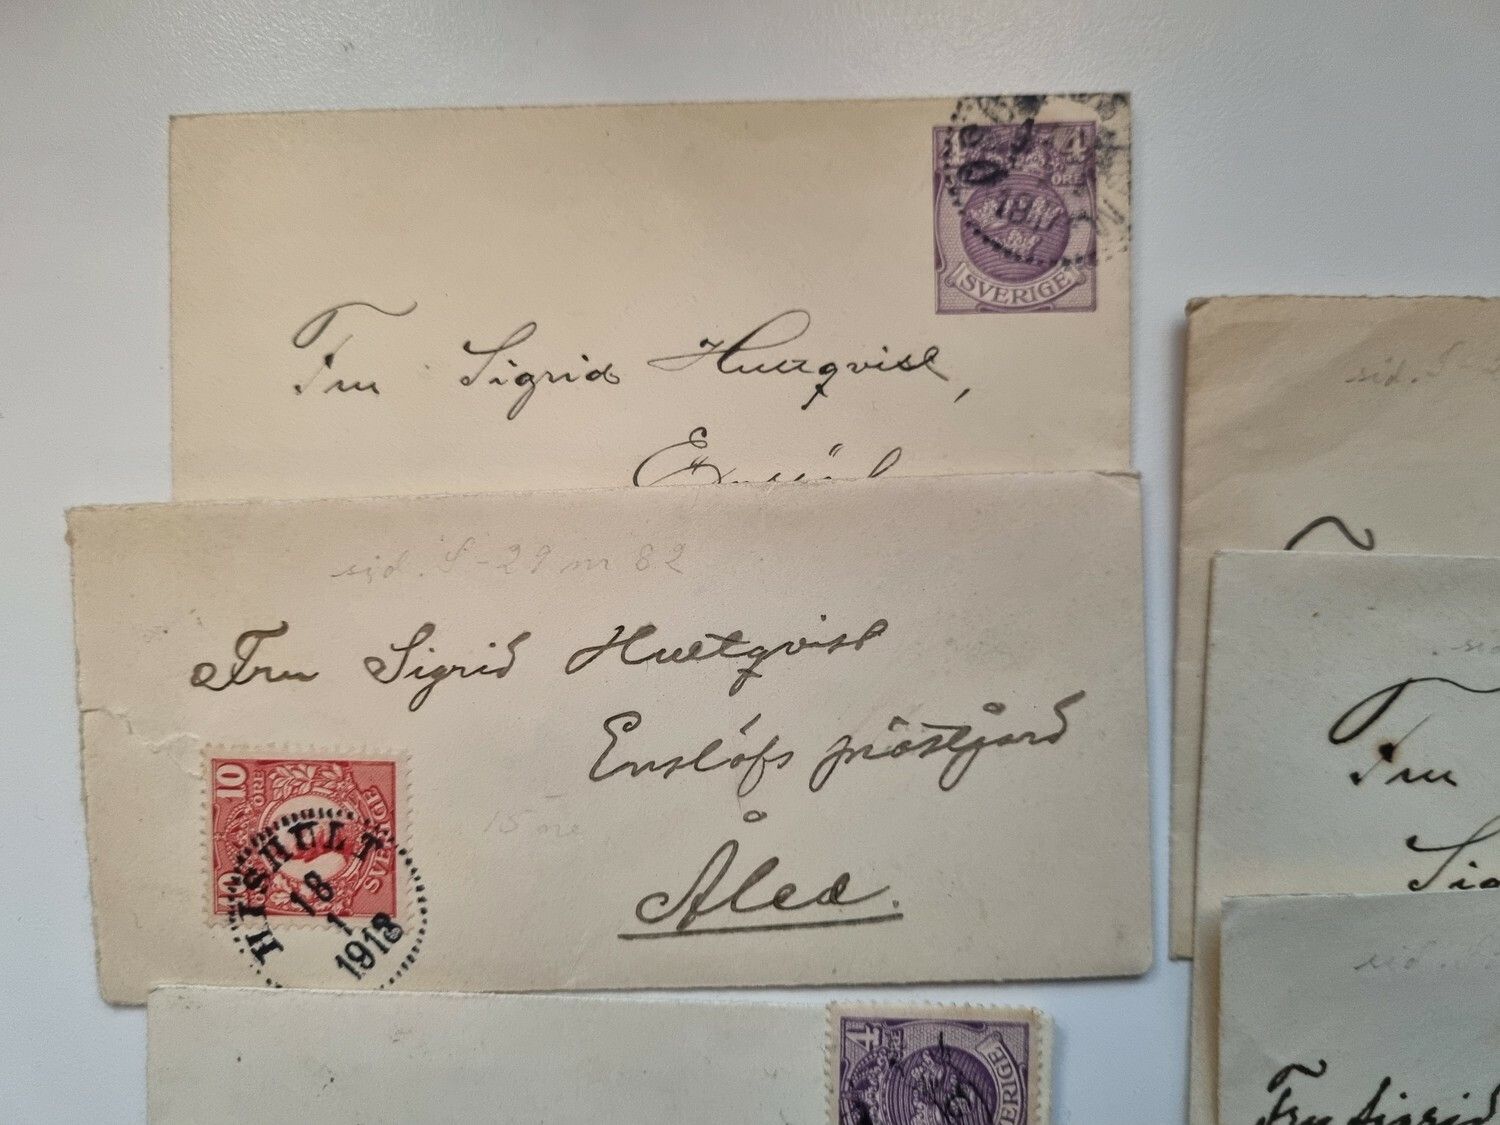 4 4
ÖRE
18
SVERIGE
Fru Sigrid Hultqvist,
Enslöf
sid. S-29 nr 82
Fru Sigrid Hultqvist
Enslöfs prästgård
Åled.
15 öre
10
ÖRE
SVERIGE
10
HISHULT
18
1
1913
4
ÖRE
SVERIGE
sid. S-2
F
sid
Fru
Sig
sid.
Fru Sigrid